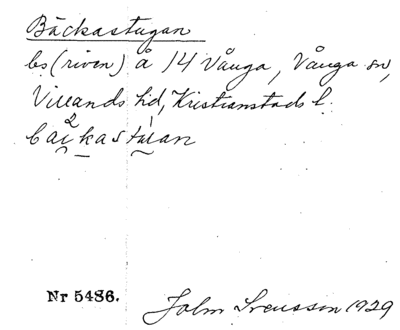 Bäckastugan
bs (riven) å 14 Vånga, Vånga sn,
Villands hd, Kristianstads l.
Nr 5486.
John Svensson 1929